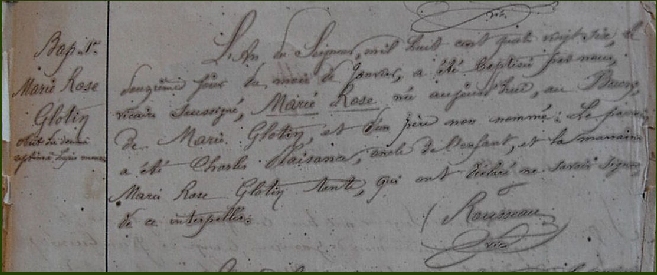 Bap. 1er
Marie Rose
Glotin
L'An du Seigneur, mil huit cent quatre vingt six, le
douzième jour du mois de Janvier, a été baptisée par nous,
vicaire soussigné, Marie Rose née aujourd'hui, au Bourg,
de Marie Glotin, et d'un père non nommé. Le parrain
a été Charles Plaisance, oncle de l'enfant, et la marraine
Marie Rose Glotin tante, qui ont déclaré ne savoir signer,
de ce interpellés.
Rousseau
vic.